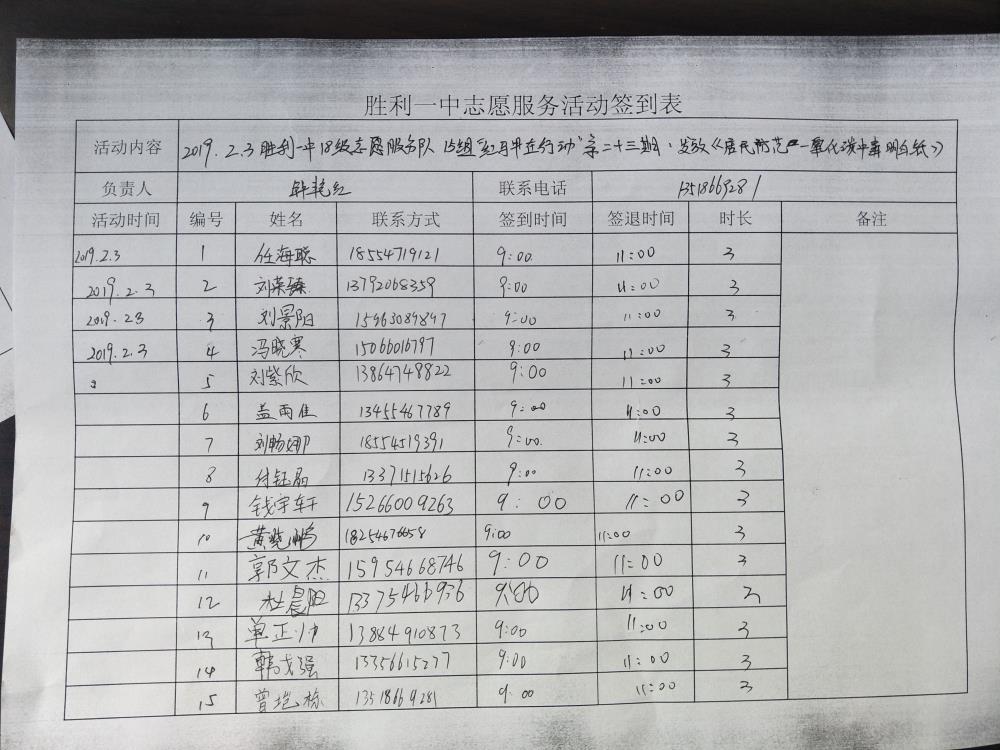 胜利一中志愿服务活动签到表
活动内容 2019.2.3胜利一中18级志愿服务队 15组"红马甲在行动"第二十三期:发放《居民防范一氧化碳中毒明白纸》
负责人 联系电话 13518669281
活动时间 编号 姓名 联系方式 签到时间 签退时间 时长 备注
2019.2.3 1 任海聪 18554719121 9:00 11:00 3
2019.2.3 2 刘荣臻 13792068359 9:00 11:00 3
2019.2.3 3 刘景阳 15463089897 9:00 11:00 3
2019.2.3 4 冯晓寒 15066016797 9:00 11:00 3
5 刘紫欣 13864748822 9:00 11:00 3
6 盖雨佳 13455467789 9:00 11:00 3
7 刘畅娜 18554519391 9:00 11:00 3
8 付钰晶 13371515626 9:00 11:00 3
9 钱宇轩 15266009263 9:00 11:00 3
10 黄晓鹏 18254676658 9:00 11:00 3
11 郭文杰 15954668746 9:00 11:00 3
12 杜晨阳 9:00 11:00 3
13 单正帅 13884910873 9:00 11:00 3
14 韩戈强 13356615277 9:00 11:00 3
15 曾垲栋 13518669281 9:00 11:00 3